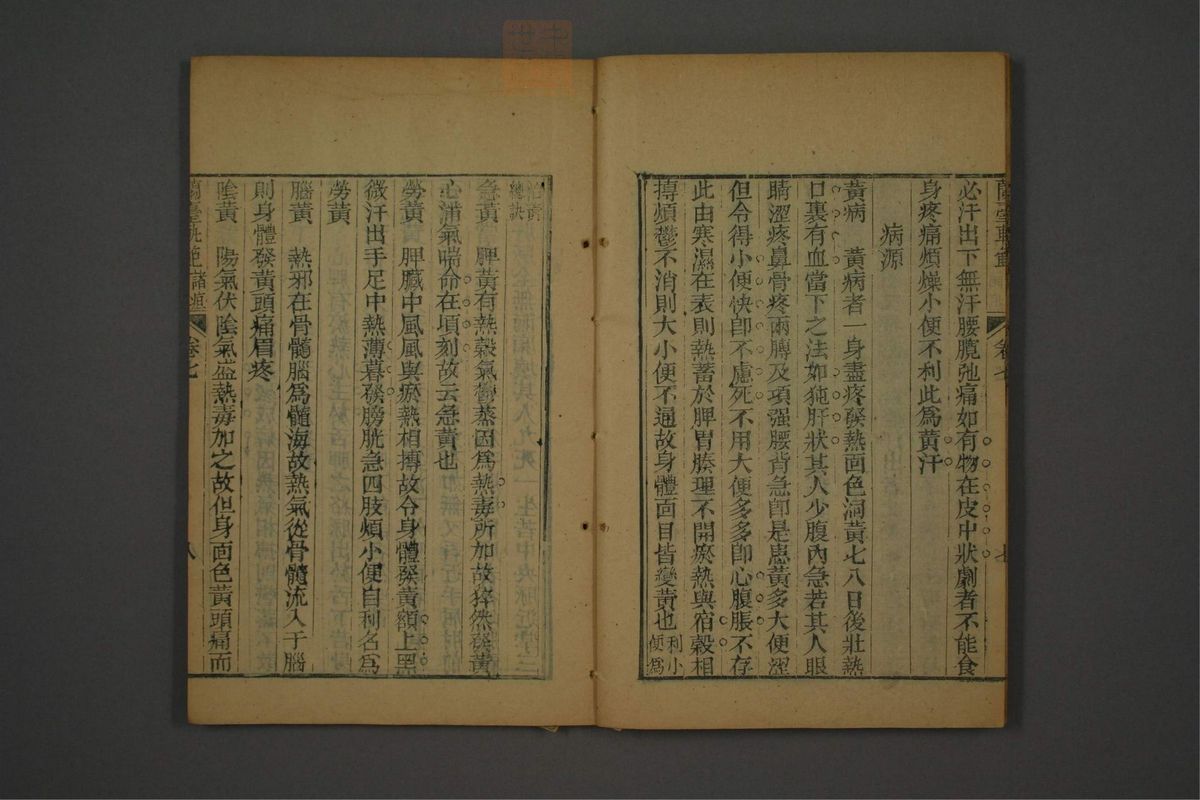 必汗出下無汗腰臗弛痛如有物在皮中狀劇者不能食
身疼痛煩燥小便不利此爲黃汗
病源
黃病　黃病者一身盡疼發熱面色洞黃七八日後壯熱
口裏有血當下之法如㹠肝狀其人少腹內急若其人眼
睛澀疼鼻骨疼兩膊及項强腰背急卽是患黃多大便澀
但令得小便快卽不慮死不用大便多多卽心腹脹不存
此由寒濕在表則熱蓄於脾胃腠理不開瘀熱與宿穀相
搏煩鬱不消則大小便不通故身體面目皆變黃也利小便爲
治黃總訣
急黃　脾黃有熱穀氣鬱蒸因爲熱毒所加故猝然發黃
心滿氣喘命在頃刻故云急黃也
勞黃　脾臟中風風與瘀熱相搏故令身體發黃額上黑
微汗出手足中熱薄暮發膀胱急四肢煩小便自利名爲
勞黃
腦黃　熱邪在骨髓腦爲髓海故熱氣從骨髓流入于腦
則身體發黃頭痛眉疼
陰黃　陽氣伏陰氣盛熱毒加之故但身面色黃頭痛而
卷七
八